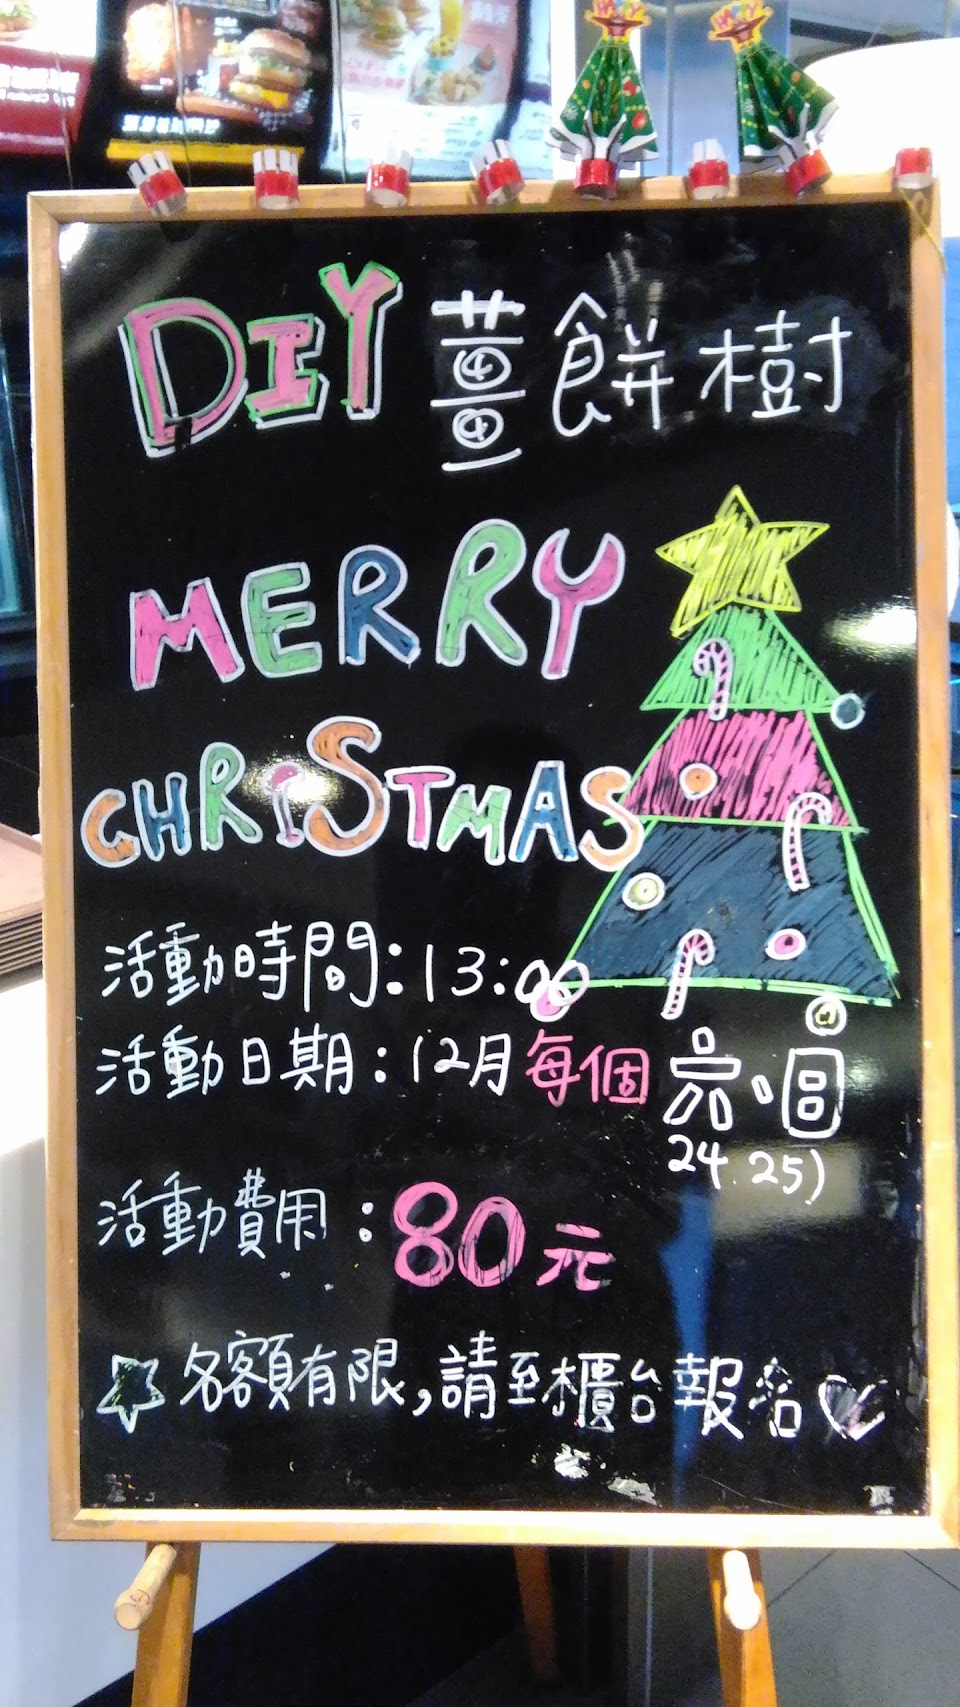 DIY 薑餅樹
MERRY
CHRISTMAS
活動時間:13:00
活動日期:12月每個六.日
24.25)
活動費用:80元
名額有限,請至櫃台報名